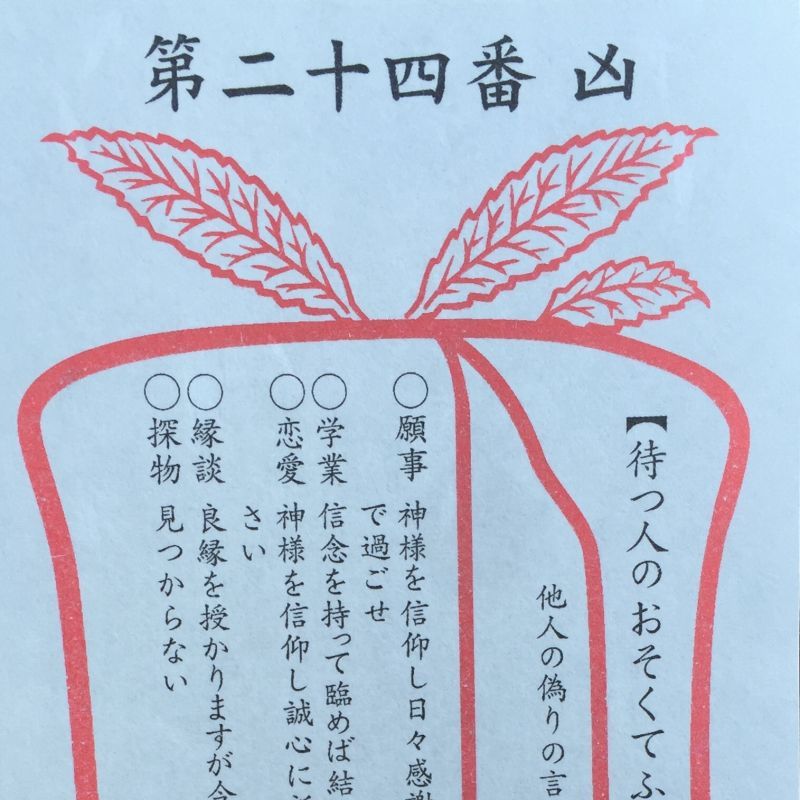 第二十四番 凶
【待つ人のおそくてふ
他人の偽りの言
○願事 神様を信仰し日々感謝
で過ごせ
○学業 信念を持って臨めば結
○恋愛 神様を信仰し誠心に
さい
○縁談 良縁を授かりますが今
○探物 見つからない